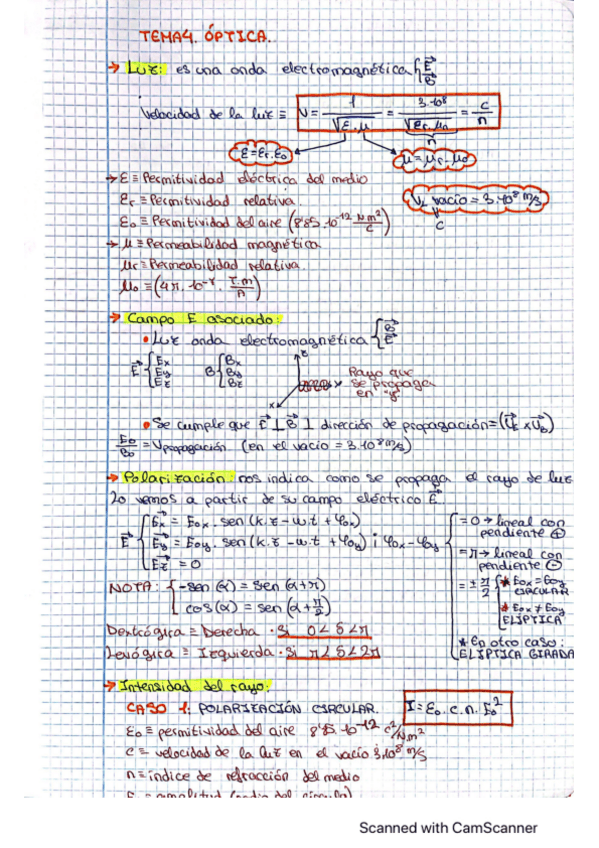 TEMA4. ÓPTICA.
→ Luz: es una onda electromagnética { E⃗ B⃗
Velocidad de la luz ≡ V = 1/√ε.μ = 3·10⁸/√εr.μr = c/n
n
ε=εr.ε0 μ=μr.μ0
→ ε ≡ Permitividad eléctrica del medio
εr ≡ Permitividad relativa. VL vacío = 3·10⁸ m/s
ε0 ≡ Permitividad del aire (8'85.10⁻¹² N m²/C) c
→ μ ≡ Permeabilidad magnética.
μr ≡ Permeabilidad relativa.
μ0 ≡ (4π.10⁻⁷. T.m/A)
→ Campo E asociado:
• Luz onda electromagnética { B⃗ E⃗
E⃗ { Ex Ey Ez B { Bx By Bz z y x Rayo que
se propaga
en "y"
• Se cumple que E⃗ ⊥ B⃗ ⊥ dirección de propagación = (U⃗E x U⃗B)
E0/B0 = Vpropagación (en el vacío = 3·10⁸ m/s)
→ Polarización: nos indica como se propaga el rayo de luz
lo vemos a partir de su campo eléctrico E⃗.
E⃗ { Ex = Eox . sen (k.z - w.t + φox)
Ey = Eoy . sen (k.z - w.t + φoy) ; φox - φoy
Ez = 0
{ = 0 → lineal con
pendiente ⊕
= π → lineal con
pendiente ⊖
= ± π/2 { * Eox = Eoy
CIRCULAR
* Eox ≠ Eoy
ELÍPTICA
* En otro caso:
ELÍPTICA GIRADA
NOTA: { -sen (α) = sen (α+π)
cos (α) = sen (α + π/2)
Dextrógira ≡ Derecha · Si 0 < δ < π
Levógira ≡ Izquierda · Si π < δ < 2π
→ Intensidad del rayo:
CASO 1: POLARIZACIÓN CIRCULAR. I = ε0 . c . n . E0²
ε0 ≡ permitividad del aire 8'85.10⁻¹² C²/Nm²
c ≡ velocidad de la luz en el vacío 3·10⁸ m/s
n ≡ índice de refracción del medio
Scanned with CamScanner